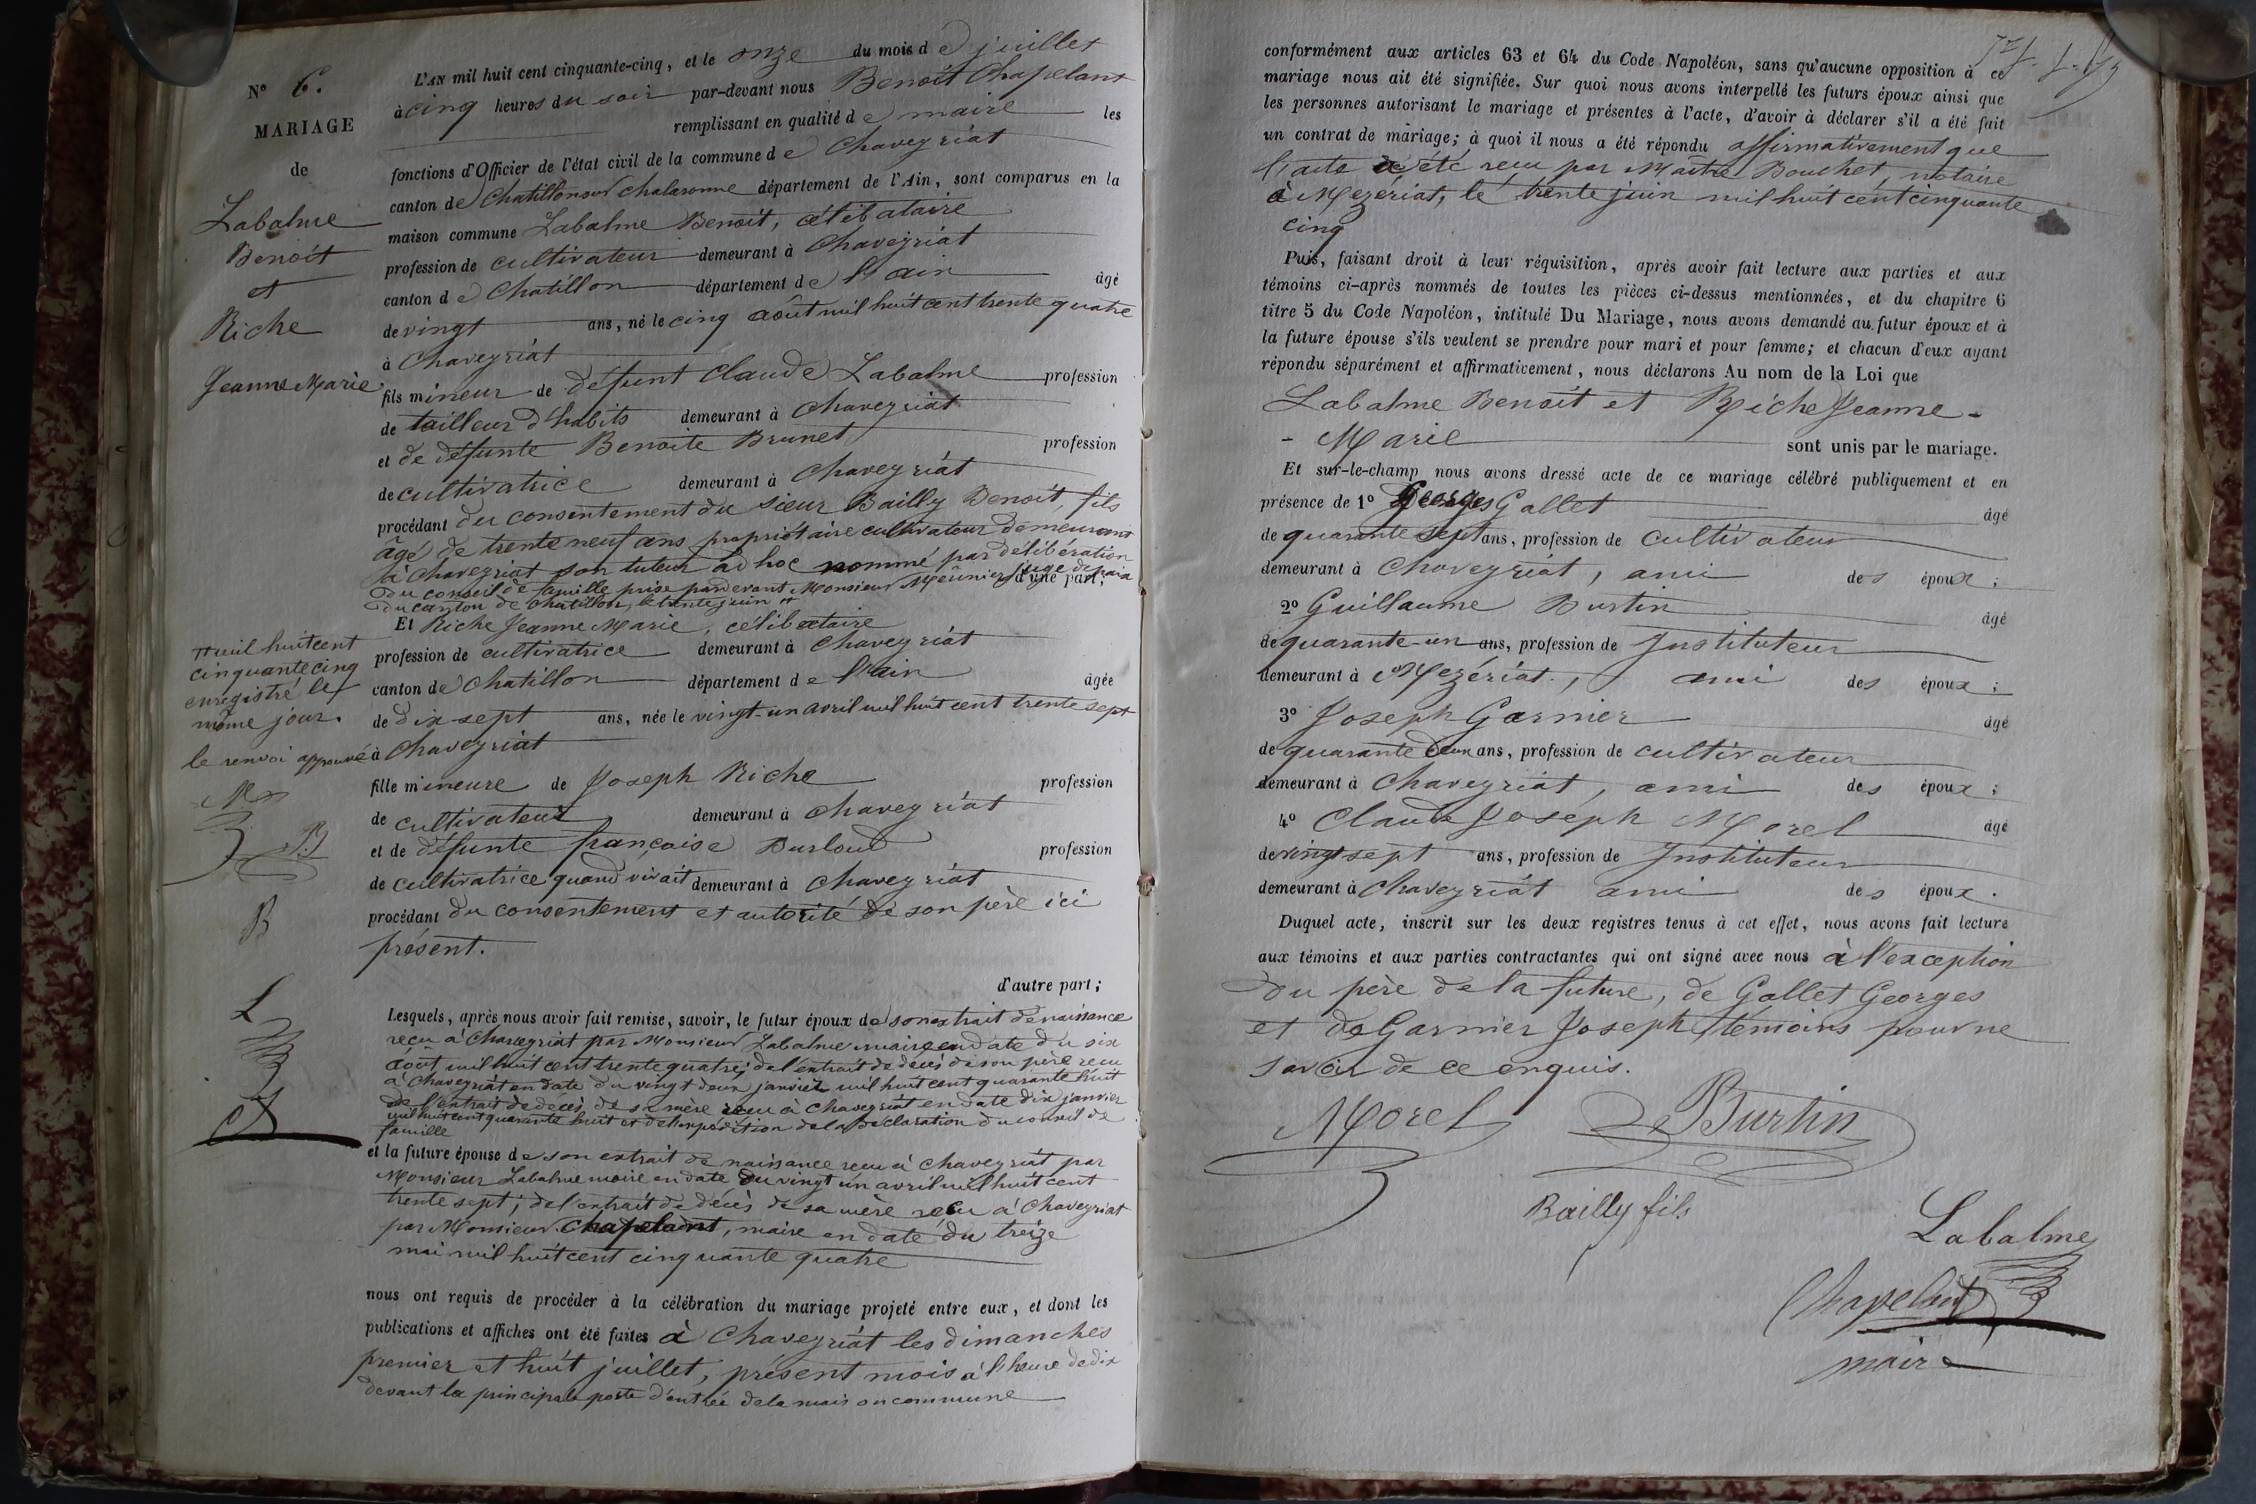 N° 6.
MARIAGE
de
Labalme
Benoît
et
Riche
Jeanne Marie
L'AN mil huit cent cinquante-cinq, et le onze du mois de juillet
à cinq heures du soir par-devant nous Benoît Chapelant
remplissant en qualité de maire les
fonctions d'Officier de l'état civil de la commune de Chaveyriat
canton de Chatillon sur Chalaronne département de l'Ain, sont comparus en la
maison commune Labalme Benoît, célibataire
profession de cultivateur demeurant à Chaveyriat
canton de Chatillon département de l'ain âgé
de vingt ans, né le cinq août mil huit cent trente quatre
à Chaveyriat
fils mineur de défunt Claude Labalme profession
de tailleur d'habits demeurant à Chaveyriat
et de défunte Benoite Brunet profession
de cultivatrice demeurant à Chaveyriat
procédant du consentement du sieur Bailly Benoît, fils
âgé de trente neuf ans propriétaire cultivateur demeurant
à Chaveyriat son tuteur ad hoc nommé par délibération
du conseil de famille prise pardevant Monsieur Meûnier juge de paix
d'une part;
du canton de Chatillon, le trente juin #
# mil huit cent
cinquante cinq
enregistré le
même jour.
le renvoi approuvé
M
B
B
L
Et Riche Jeanne Marie, célibataire
profession de cultivatrice demeurant à Chaveyriat
canton de Chatillon département de l'ain âgée
de dix sept ans, née le vingt-un avril mil huit cent trente sept
à Chaveyriat
fille mineure de Joseph Riche profession
de cultivateur demeurant à Chaveyriat
et de défunte françoise Burloud profession
de cultivatrice quand vivait demeurant à Chaveyriat
procédant du consentement et autorité de son père ici
présent.
d'autre part;
Lesquels, après nous avoir fait remise, savoir, le futur époux de son extrait de naissance
reçu à Chaveyriat par Monsieur Labalme maire en date du six
août mil huit cent trente quatre; de l'extrait de décès de son père reçu
à Chaveyriat en date du vingt deux janvier mil huit cent quarante huit
de l'extrait de décès de sa mère reçu à Chaveyriat en date dix janvier
mil huit cent quarante huit et de l'expédition de la déclaration du conseil de
famille
et la future épouse de son extrait de naissance reçu à Chaveyriat par
Monsieur Labalme maire en date du vingt un avril mil huit cent
trente sept; de l'extrait de décès de sa mère reçu à Chaveyriat
par Monsieur Chapelant, maire en date du treize
mai mil huit cent cinquante quatre
nous ont requis de procéder à la célébration du mariage projeté entre eux, et dont les
publications et affiches ont été faites à Chaveyriat les dimanches
premier et huit juillet, présent mois à l'heure de dix
devant la principale porte d'entrée de la maison commune
conformément aux articles 63 et 64 du Code Napoléon, sans qu'aucune opposition à ce
mariage nous ait été signifiée. Sur quoi nous avons interpellé les futurs époux ainsi que
les personnes autorisant le mariage et présentes à l'acte, d'avoir à déclarer s'il a été fait
un contrat de mariage; à quoi il nous a été répondu affirmativement que
l'acte a été reçu par Maître Bouchet, notaire
à Mezériat, le trente juin mil huit cent cinquante
cinq
Puis, faisant droit à leur réquisition, après avoir fait lecture aux parties et aux
témoins ci-après nommés de toutes les pièces ci-dessus mentionnées, et du chapitre 6
titre 5 du Code Napoléon, intitulé Du Mariage, nous avons demandé au futur époux et à
la future épouse s'ils veulent se prendre pour mari et pour femme; et chacun d'eux ayant
répondu séparément et affirmativement, nous déclarons Au nom de la Loi que
Labalme Benoît et Riche Jeanne-
- Marie sont unis par le mariage.
Et sur-le-champ nous avons dressé acte de ce mariage célébré publiquement et en
présence de 1° Georges Gallet âgé
de quarante sept ans, profession de cultivateur
demeurant à Chaveyriat, ami des époux;
2° Guillaume Burtin âgé
de quarante-un ans, profession de Instituteur
demeurant à Mezériat, ami des époux;
3° Joseph Garnier âgé
de quarante deux ans, profession de cultivateur
demeurant à Chaveyriat, ami des époux;
4° Claude Joseph Morel âgé
de vingt sept ans, profession de Instituteur
demeurant à Chaveyriat ami des époux.
Duquel acte, inscrit sur les deux registres tenus à cet effet, nous avons fait lecture
aux témoins et aux parties contractantes qui ont signé avec nous à l'exception
du père de la future, de Gallet Georges
et de Garnier Joseph témoins pour ne
savoir de ce enquis.
Morel Burtin
Bailly fils
Labalme
Chapelant
maire